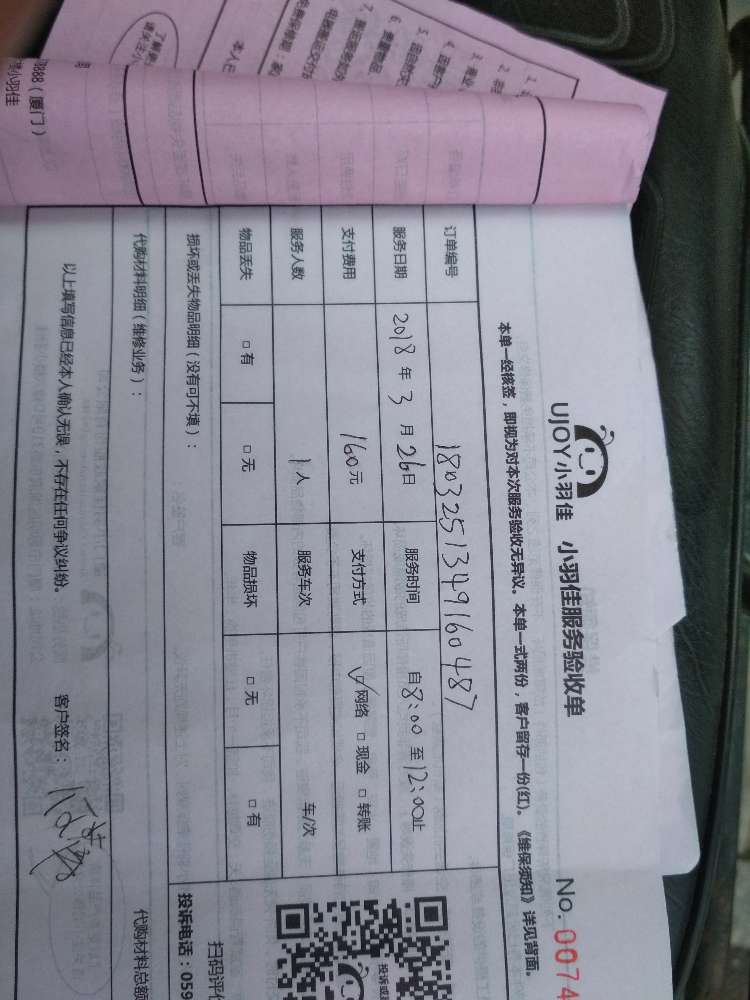 UJOY小羽佳 小羽佳服务验收单
No. 0074
本单一经核签，即视为对本次服务验收无异议。本单一式两份，客户留存一份(红)。《维保须知》详见背面。
订单编号 1803251349160487
服务日期 2018年3月26日 服务时间 自8:00至12:00止
支付费用 160元 支付方式 ☑网络 □现金 □转账
服务人数 1人 服务车次 车/次
物品丢失 □有 □无 物品损坏 □无 □有
损坏或丢失物品明细（没有可不填）：
代购材料明细（维修业务）：
代购材料总额
以上填写信息已经本人确认无误，不存在任何争议纠纷。 客户签名：
扫码评
投诉电话：059
投诉或
888（厦门）
小羽佳
本人已